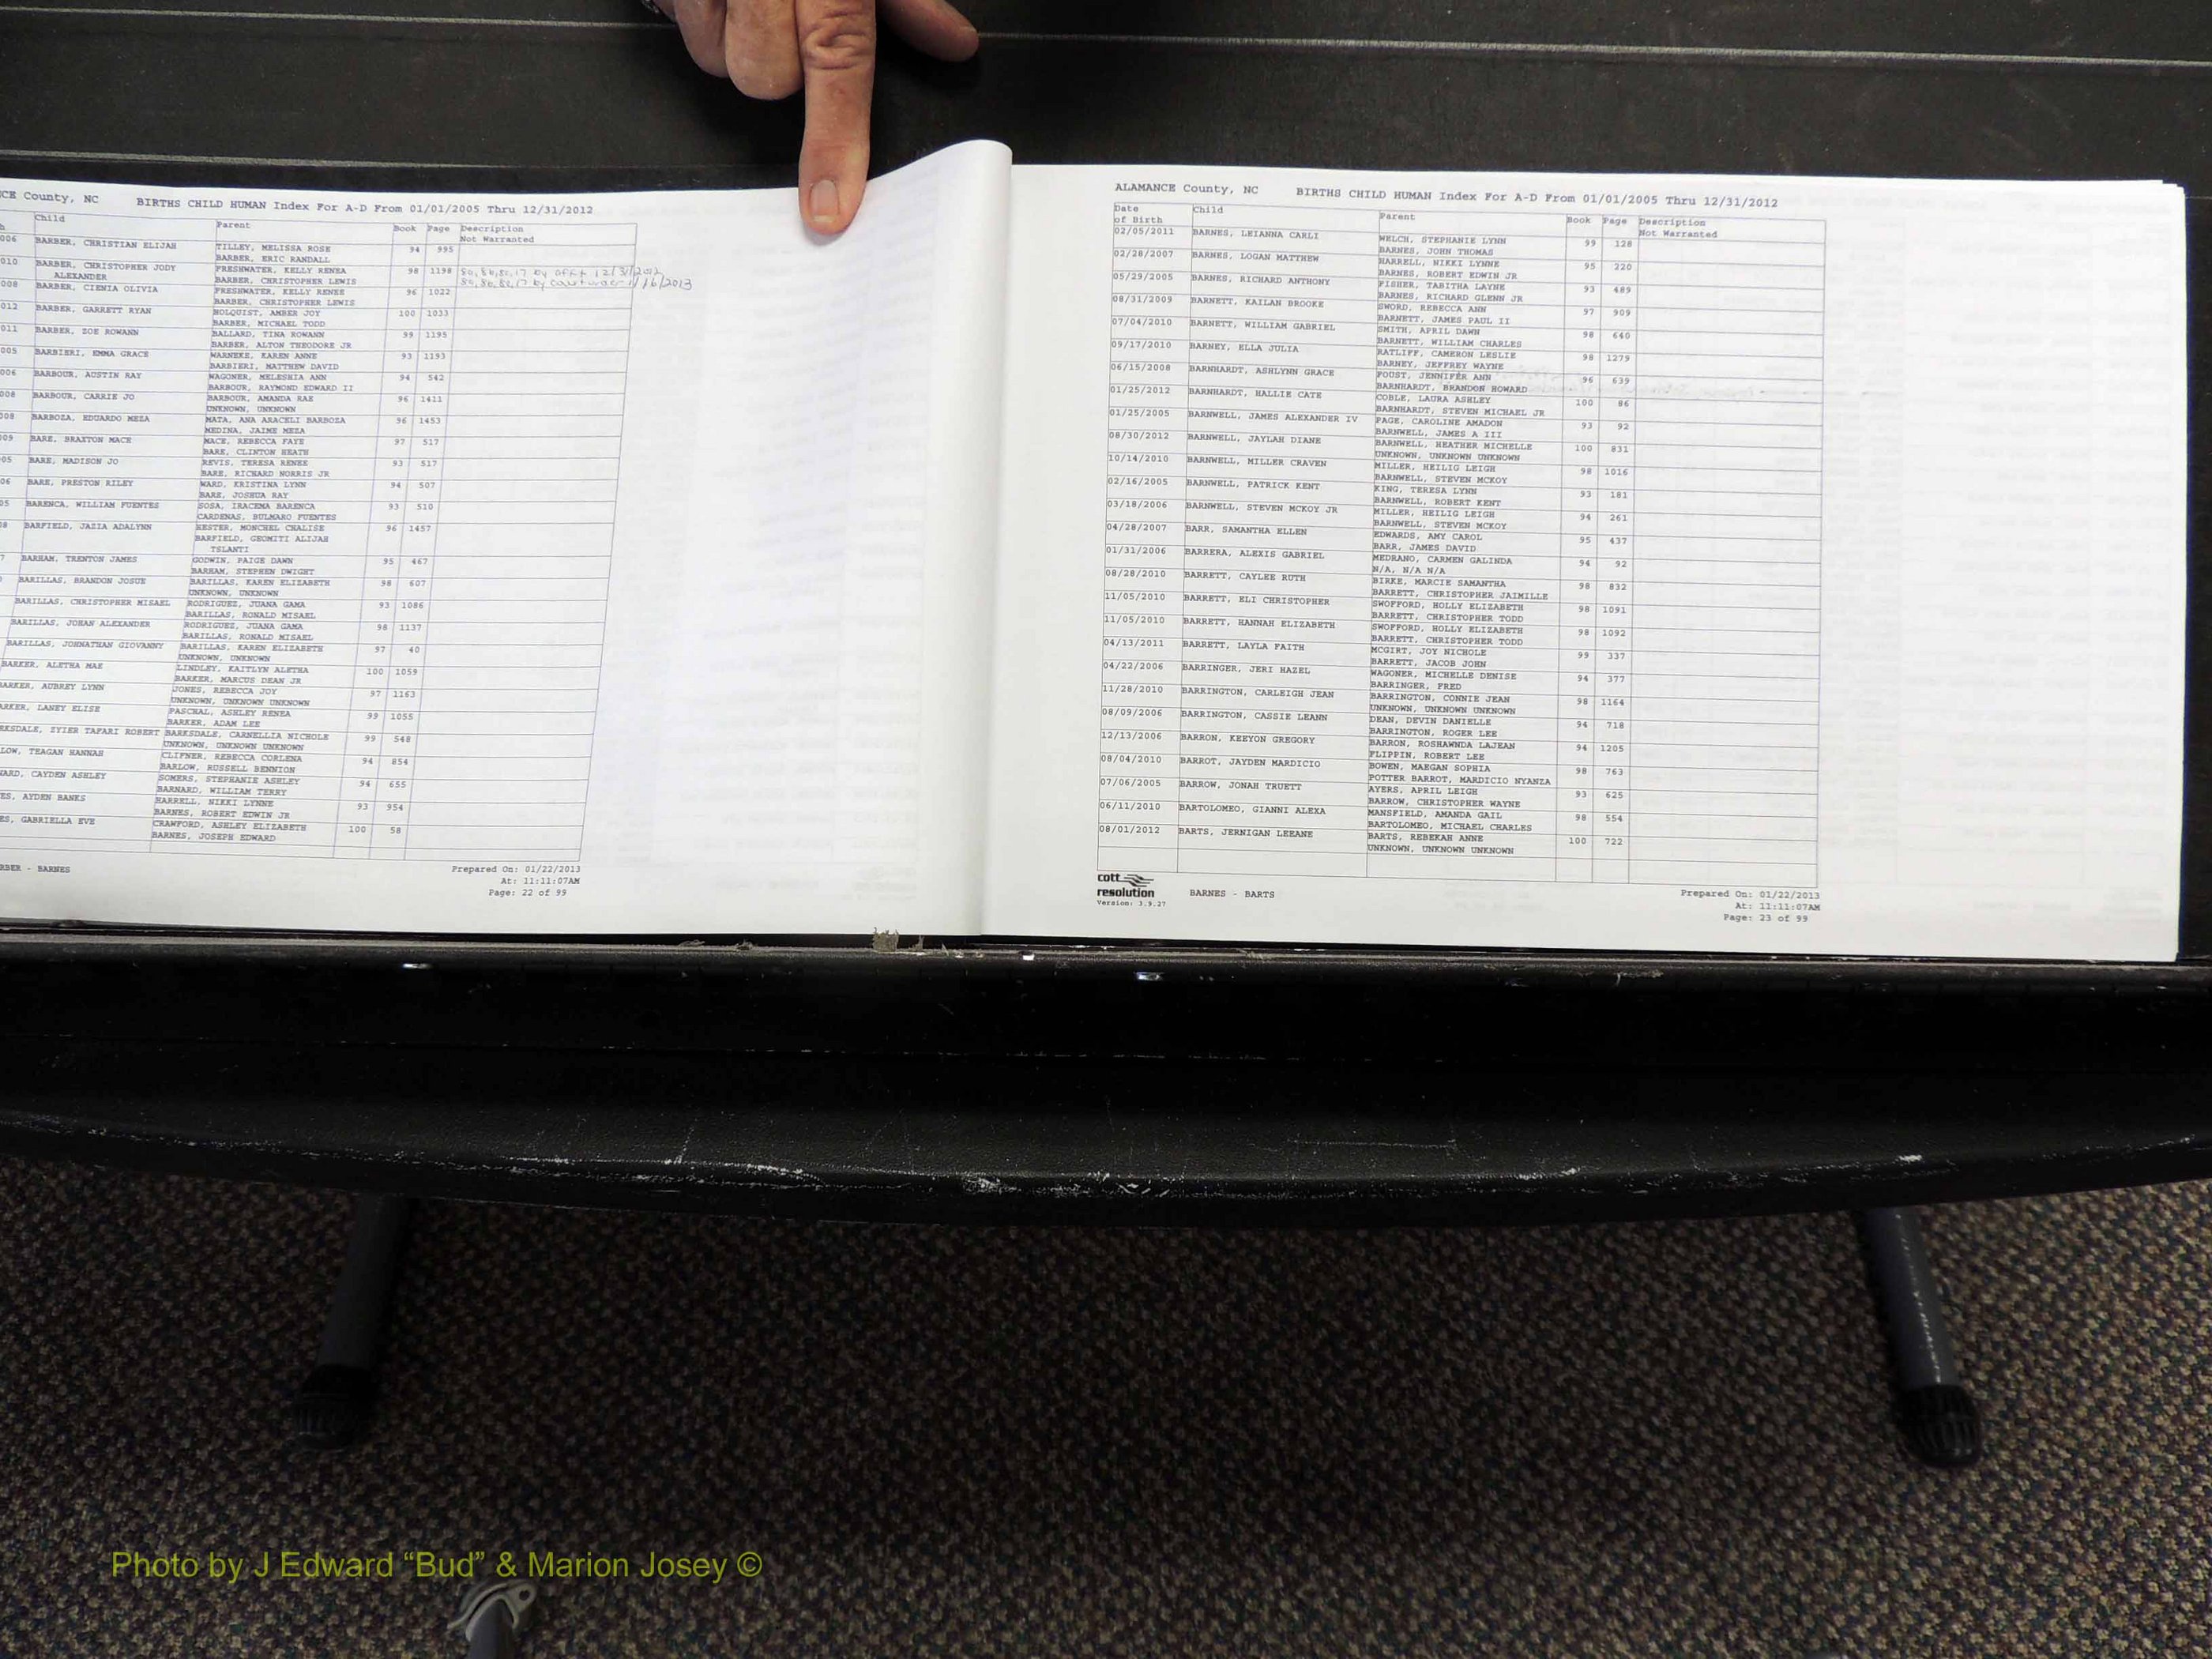 CE County, NC BIRTHS CHILD HUMAN Index For A-D From 01/01/2005 Thru 12/31/2012
Child Parent Book Page Description
Not Warranted
006 BARBER, CHRISTIAN ELIJAH TILLEY, MELISSA ROSE 94 995
BARBER, ERIC RANDALL
010 BARBER, CHRISTOPHER JODY FRESHWATER, KELLY RENEA 98 1198 8a, 8b, 8c, 17 by 12/3/2012
ALEXANDER BARBER, CHRISTOPHER LEWIS 8a, 8b, 8c, 17 by 1/16/2013
008 BARBER, CIENIA OLIVIA FRESHWATER, KELLY RENEE 96 1022
BARBER, CHRISTOPHER LEWIS
012 BARBER, GARRETT RYAN HOLQUIST, AMBER JOY 100 1033
BARBER, MICHAEL TODD
011 BARBER, ZOE ROWANN BALLARD, TINA ROWANN 99 1195
BARBER, ALTON THEODORE JR
005 BARBIERI, EMMA GRACE WARNEKE, KAREN ANNE 93 1193
BARBIERI, MATTHEW DAVID
006 BARBOUR, AUSTIN RAY WAGONER, MELESHIA ANN 94 542
BARBOUR, RAYMOND EDWARD II
008 BARBOUR, CARRIE JO BARBOUR, AMANDA RAE 96 1411
UNKNOWN, UNKNOWN
008 BARBOZA, EDUARDO MEZA MATA, ANA ARACELI BARBOZA 96 1453
MEDINA, JAIME MEZA
009 BARE, BRAXTON MACE MACE, REBECCA FAYE 97 517
BARE, CLINTON HEATH
05 BARE, MADISON JO REVIS, TERESA RENEE 93 517
BARE, RICHARD NORRIS JR
06 BARE, PRESTON RILEY WARD, KRISTINA LYNN 94 507
BARE, JOSHUA RAY
05 BARENCA, WILLIAM FUENTES SOSA, IRACEMA BARENCA 93 510
CARDENAS, BULMARO FUENTES
08 BARFIELD, JAZIA ADALYNN HESTER, MONCHEL CHALISE 96 1457
BARFIELD, GEOMITI ALIJAH
TSLANTI
7 BARHAM, TRENTON JAMES GODWIN, PAIGE DAWN 95 467
BARHAM, STEPHEN DWIGHT
BARILLAS, BRANDON JOSUE BARILLAS, KAREN ELIZABETH 98 607
UNKNOWN, UNKNOWN
BARILLAS, CHRISTOPHER MISAEL RODRIGUEZ, JUANA GAMA 93 1086
BARILLAS, RONALD MISAEL
BARILLAS, JOHAN ALEXANDER RODRIGUEZ, JUANA GAMA 98 1137
BARILLAS, RONALD MISAEL
BARILLAS, JOHNATHAN GIOVANNY BARILLAS, KAREN ELIZABETH 97 40
UNKNOWN, UNKNOWN
BARKER, ALETHA MAE LINDLEY, KAITLYN ALETHA 100 1059
BARKER, MARCUS DEAN JR
ARKER, AUBREY LYNN JONES, REBECCA JOY 97 1163
UNKNOWN, UNKNOWN UNKNOWN
RKER, LANEY ELISE PASCHAL, ASHLEY RENEA 99 1055
BARKER, ADAM LEE
RKSDALE, ZYIER TAFARI ROBERT BARKSDALE, CARNELLIA NICHOLE 99 548
UNKNOWN, UNKNOWN UNKNOWN
LOW, TEAGAN HANNAH CLIFNER, REBECCA CORLENA 94 854
BARLOW, RUSSELL BENNION
ARD, CAYDEN ASHLEY SOMERS, STEPHANIE ASHLEY 94 655
BARNARD, WILLIAM TERRY
ES, AYDEN BANKS HARRELL, NIKKI LYNNE 93 954
BARNES, ROBERT EDWIN JR
ES, GABRIELLA EVE CRAWFORD, ASHLEY ELIZABETH 100 58
BARNES, JOSEPH EDWARD
RBER - BARNES Prepared On: 01/22/2013
At: 11:11:07AM
Page: 22 of 99
ALAMANCE County, NC BIRTHS CHILD HUMAN Index For A-D From 01/01/2005 Thru 12/31/2012
Date Child Parent Book Page Description
of Birth Not Warranted
02/05/2011 BARNES, LEIANNA CARLI WELCH, STEPHANIE LYNN 99 128
BARNES, JOHN THOMAS
02/28/2007 BARNES, LOGAN MATTHEW HARRELL, NIKKI LYNNE 95 220
BARNES, ROBERT EDWIN JR
05/29/2005 BARNES, RICHARD ANTHONY FISHER, TABITHA LAYNE 93 489
BARNES, RICHARD GLENN JR
08/31/2009 BARNETT, KAILAN BROOKE SWORD, REBECCA ANN 97 909
BARNETT, JAMES PAUL II
07/04/2010 BARNETT, WILLIAM GABRIEL SMITH, APRIL DAWN 98 640
BARNETT, WILLIAM CHARLES
09/17/2010 BARNEY, ELLA JULIA RATLIFF, CAMERON LESLIE 98 1279
BARNEY, JEFFREY WAYNE
06/15/2008 BARNHARDT, ASHLYNN GRACE FOUST, JENNIFER ANN 96 639
BARNHARDT, BRANDON HOWARD
01/25/2012 BARNHARDT, HALLIE CATE COBLE, LAURA ASHLEY 100 86
BARNHARDT, STEVEN MICHAEL JR
01/25/2005 BARNWELL, JAMES ALEXANDER IV PAGE, CAROLINE AMADON 93 92
BARNWELL, JAMES A III
08/30/2012 BARNWELL, JAYLAH DIANE BARNWELL, HEATHER MICHELLE 100 831
UNKNOWN, UNKNOWN UNKNOWN
10/14/2010 BARNWELL, MILLER CRAVEN MILLER, HEILIG LEIGH 98 1016
BARNWELL, STEVEN MCKOY
02/16/2005 BARNWELL, PATRICK KENT KING, TERESA LYNN 93 181
BARNWELL, ROBERT KENT
03/18/2006 BARNWELL, STEVEN MCKOY JR MILLER, HEILIG LEIGH 94 261
BARNWELL, STEVEN MCKOY
04/28/2007 BARR, SAMANTHA ELLEN EDWARDS, AMY CAROL 95 437
BARR, JAMES DAVID
01/31/2006 BARRERA, ALEXIS GABRIEL MEDRANO, CARMEN GALINDA 94 92
N/A, N/A N/A
08/28/2010 BARRETT, CAYLEE RUTH BIRKE, MARCIE SAMANTHA 98 832
BARRETT, CHRISTOPHER JAIMILLE
11/05/2010 BARRETT, ELI CHRISTOPHER SWOFFORD, HOLLY ELIZABETH 98 1091
BARRETT, CHRISTOPHER TODD
11/05/2010 BARRETT, HANNAH ELIZABETH SWOFFORD, HOLLY ELIZABETH 98 1092
BARRETT, CHRISTOPHER TODD
04/13/2011 BARRETT, LAYLA FAITH MCGIRT, JOY NICHOLE 99 337
BARRETT, JACOB JOHN
04/22/2006 BARRINGER, JERI HAZEL WAGONER, MICHELLE DENISE 94 377
BARRINGER, FRED
11/28/2010 BARRINGTON, CARLEIGH JEAN BARRINGTON, CONNIE JEAN 98 1164
UNKNOWN, UNKNOWN UNKNOWN
08/09/2006 BARRINGTON, CASSIE LEANN DEAN, DEVIN DANIELLE 94 718
BARRINGTON, ROGER LEE
12/13/2006 BARRON, KEEYON GREGORY BARRON, ROSHAWNDA LAJEAN 94 1205
FLIPPIN, ROBERT LEE
08/04/2010 BARROT, JAYDEN MARDICIO BOWEN, MAEGAN SOPHIA 98 763
POTTER BARROT, MARDICIO NYANZA
07/06/2005 BARROW, JONAH TRUETT AYERS, APRIL LEIGH 93 625
BARROW, CHRISTOPHER WAYNE
06/11/2010 BARTOLOMEO, GIANNI ALEXA MANSFIELD, AMANDA GAIL 98 554
BARTOLOMEO, MICHAEL CHARLES
08/01/2012 BARTS, JERNIGAN LEEANE BARTS, REBEKAH ANNE 100 722
UNKNOWN, UNKNOWN UNKNOWN
cott
resolution BARNES - BARTS Prepared On: 01/22/2013
Version: 3.9.27 At: 11:11:07AM
Page: 23 of 99
Photo by J Edward “Bud” & Marion Josey ©